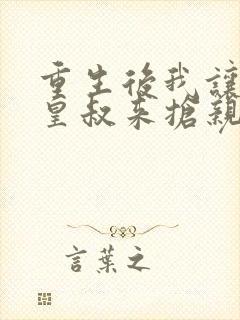 重生後我讓
皇叔來搶親
言葉之